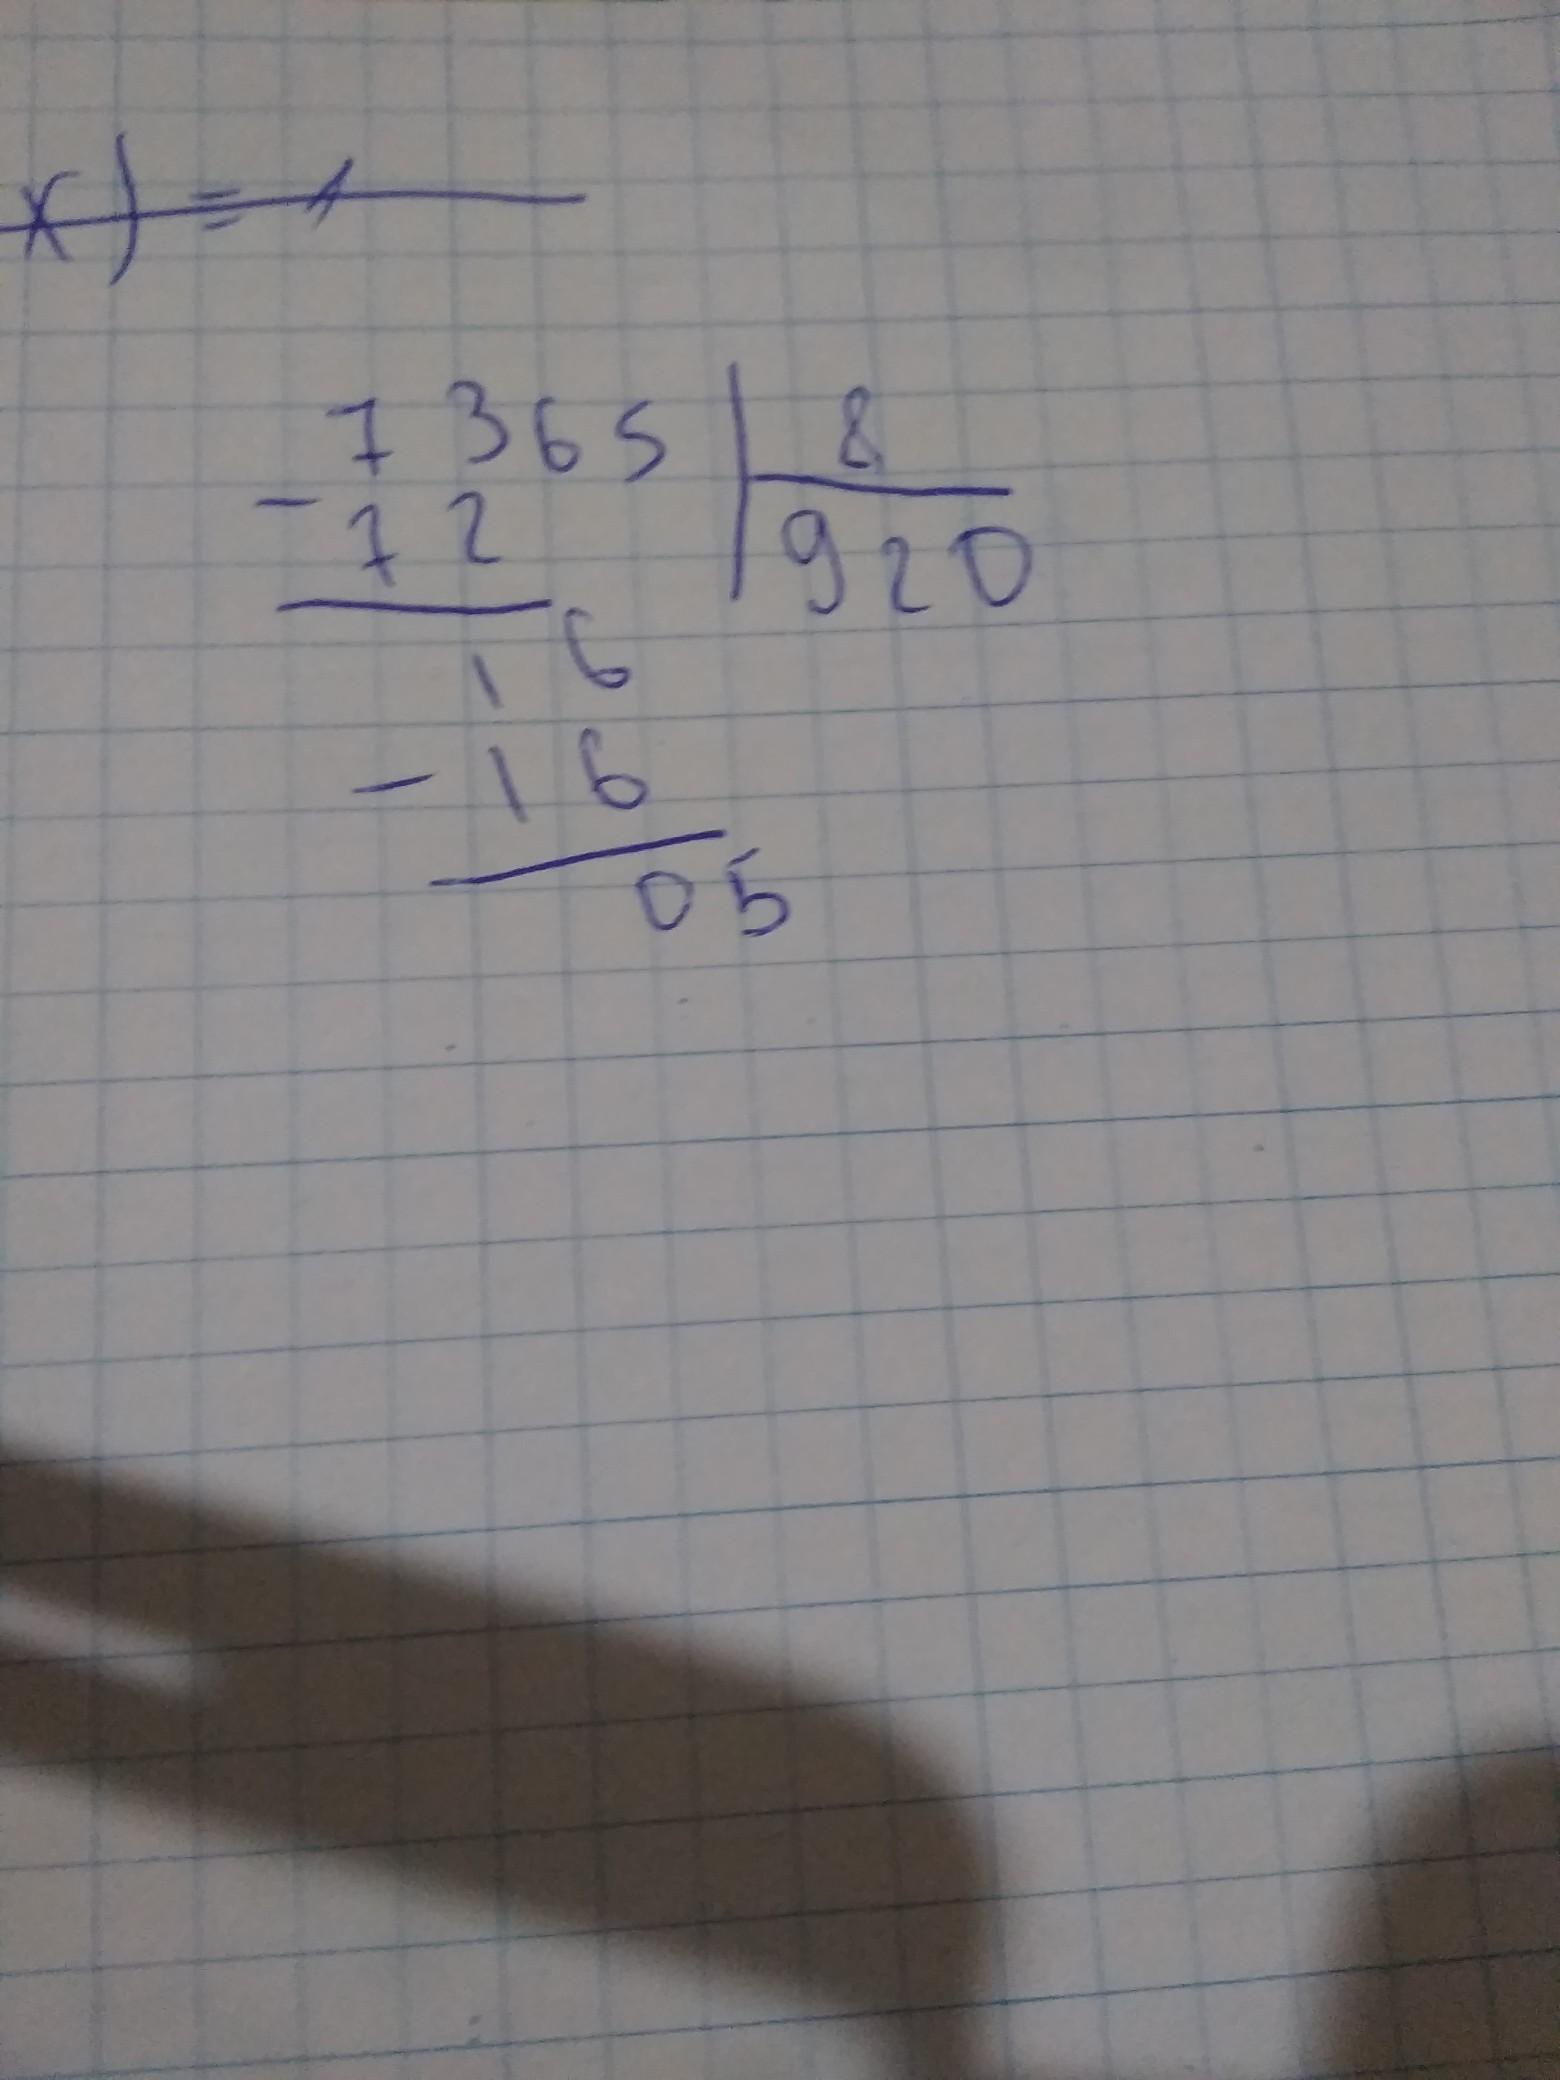 x) = 1
7365 | 8
- 72 | 920
16
- 16
05